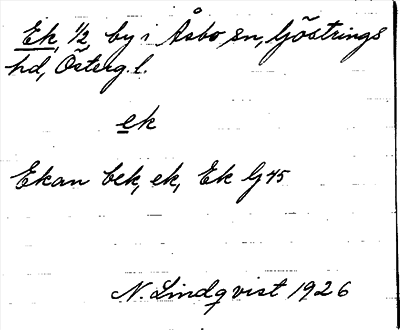 Ek, 1/2 by i Åsbo sn, Göstrings
hd, Österg. l.
ek
Ekan bek, ek, Ek Gj 45
N. Lindqvist 1926